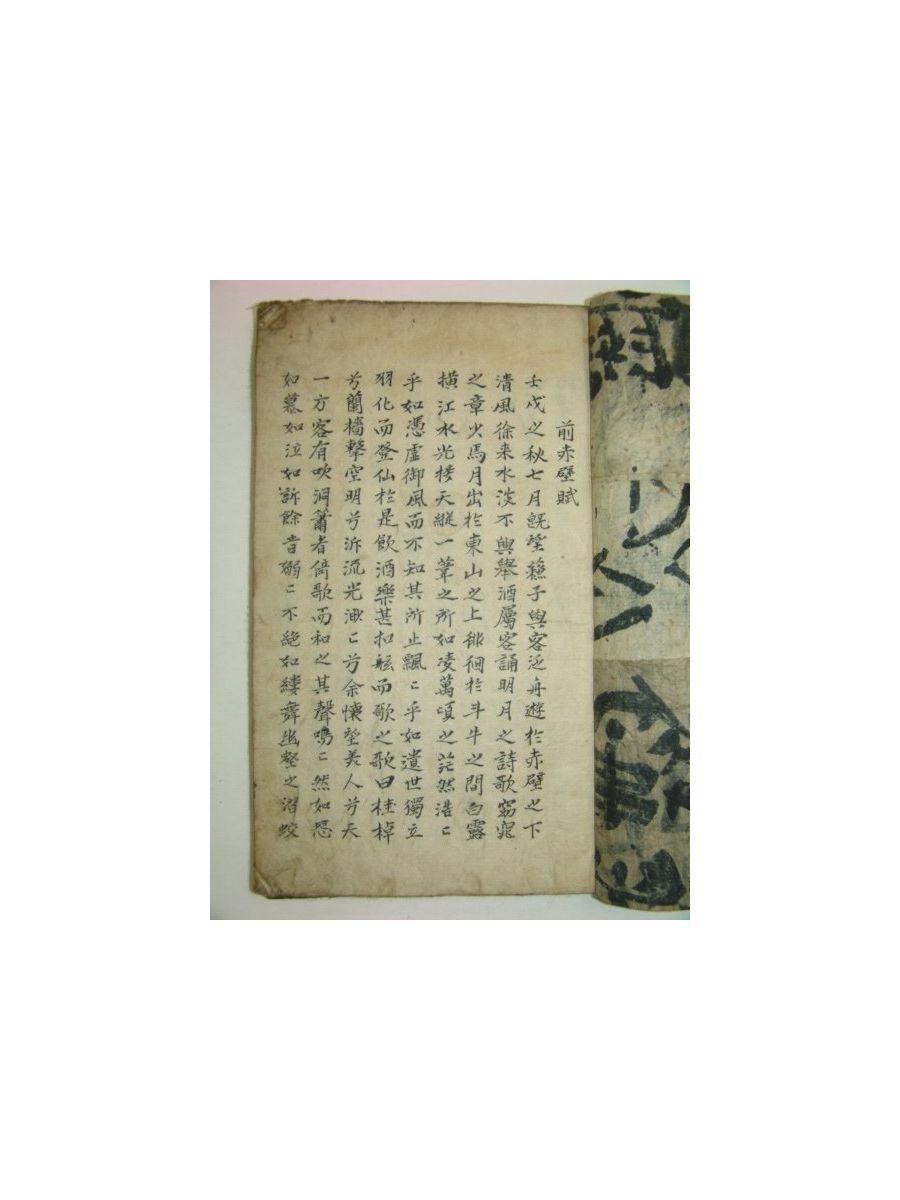 前赤壁賦
壬戌之秋七月旣望蘓子與客泛舟遊於赤壁之下
清風徐来水淡不興舉酒属客誦明月之詩歌窈窕
之章少焉月出於東山之上徘徊於斗牛之間白露
横江水光接天縦一葦之所如凌萬頃之茫然浩〻
乎如憑虛御風而不知其所止飄〻乎如遺世獨立
羽化而登仙於是飲酒樂甚扣舷而歌之歌曰桂棹
兮蘭槳擊空明兮泝流光渺〻兮余懷望美人兮天
一方客有吹洞簫者倚歌而和之其聲嗚〻然如怨
如慕如泣如訴餘音嫋〻不絶如縷舞幽壑之潜蛟